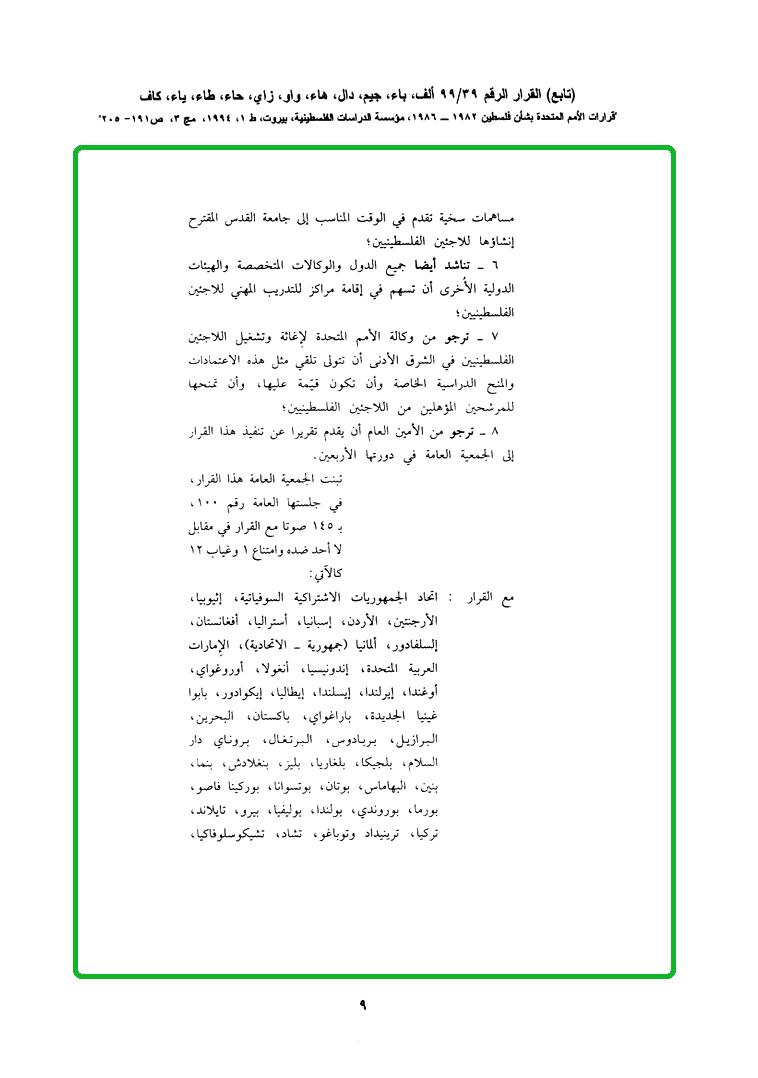 (تابع) القرار الرقم ٩٩/٣٩ ألف، باء، جيم، دال، هاء، واو، زاي، حاء، طاء، ياء، كاف
"قرارات الأمم المتحدة بشأن فلسطين ١٩٨٢ ــ ١٩٨٦، مؤسسة الدراسات الفلسطينية، بيروت، ط ١، ١٩٩٤، مج ٣، ص ١٩١- ٢٠٥"
مساهمات سخية تقدم في الوقت المناسب إلى جامعة القدس المقترح
إنشاؤها للاجئين الفلسطينيين؛
٦ ـ تناشد أيضا جميع الدول والوكالات المتخصصة والهيئات
الدولية الأُخرى أن تسهم في إقامة مراكز للتدريب المهني للاجئين
الفلسطينيين؛
٧ ـ ترجو من وكالة الأمم المتحدة لإغاثة وتشغيل اللاجئين
الفلسطينيين في الشرق الأدنى أن تتولى تلقي مثل هذه الاعتمادات
والمنح الدراسية الخاصة وأن تكون قيّمة عليها، وأن تمنحها
للمرشحين المؤهلين من اللاجئين الفلسطينيين؛
٨ ـ ترجو من الأمين العام أن يقدم تقريرا عن تنفيذ هذا القرار
إلى الجمعية العامة في دورتها الأربعين.
تبنت الجمعية العامة هذا القرار،
في جلستها العامة رقم ١٠٠،
بـ ١٤٥ صوتا مع القرار في مقابل
لا أحد ضده وامتناع ١ وغياب ١٢
كالآتي:
مع القرار : اتحاد الجمهوريات الاشتراكية السوفياتية، إثيوبيا،
الأرجنتين، الأردن، إسبانيا، أستراليا، أفغانستان،
إلسلفادور، ألمانيا (جمهورية ـ الاتحادية)، الإمارات
العربية المتحدة، إندونيسيا، أنغولا، أوروغواي،
أوغندا، إيرلندا، إيسلندا، إيطاليا، إيكوادور، بابوا
غينيا الجديدة، باراغواي، باكستان، البحرين،
البرازيل، بربادوس، البرتغال، بروناي دار
السلام، بلجيكا، بلغاريا، بليز، بنغلادش، بنما،
بنين، البهاماس، بوتان، بوتسوانا، بوركينا فاصو،
بورما، بوروندي، بولندا، بوليفيا، بيرو، تايلاند،
تركيا، ترينيداد وتوباغو، تشاد، تشيكوسلوفاكيا،
٩